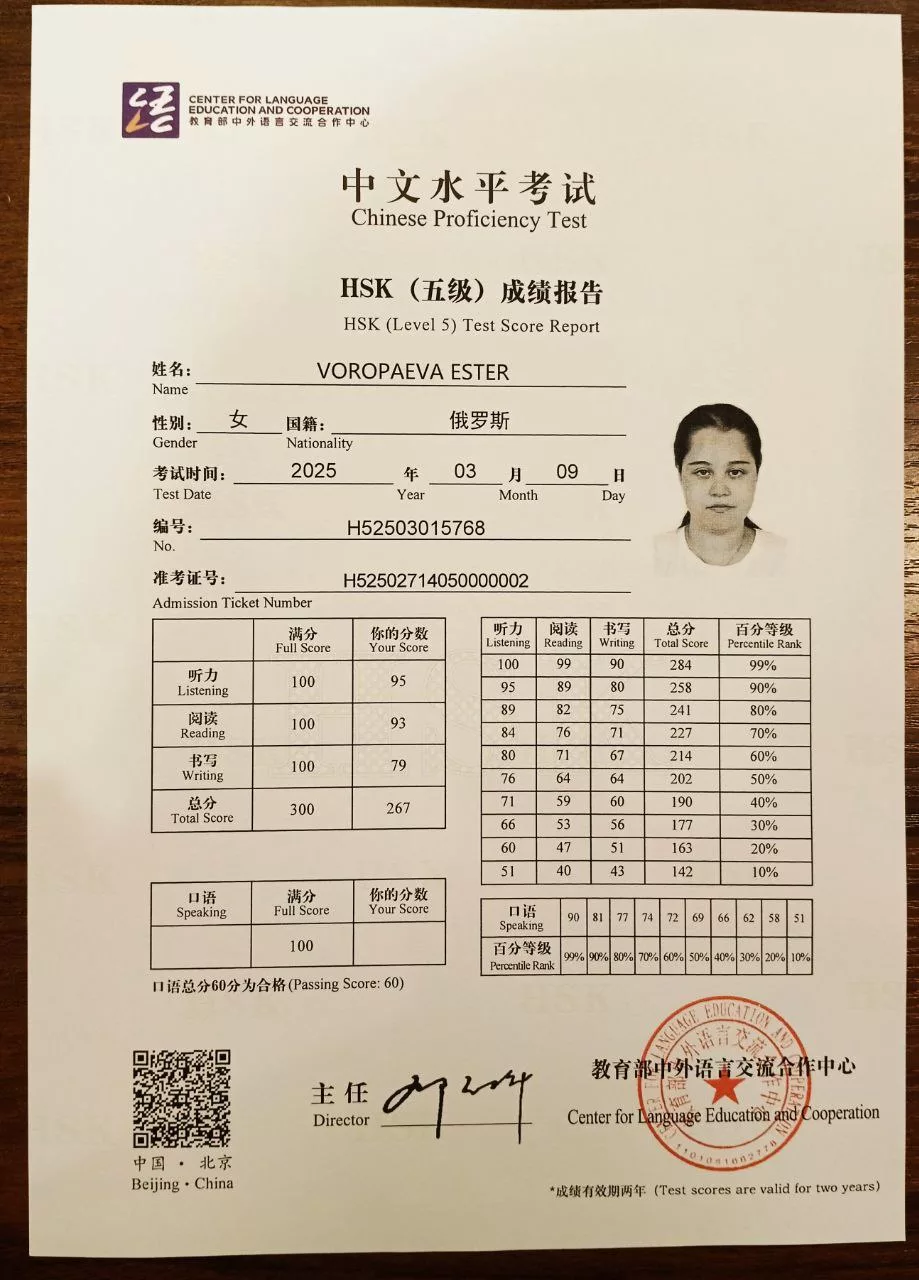 CENTER FOR LANGUAGE
EDUCATION AND COOPERATION
教育部中外语言交流合作中心
中文水平考试
Chinese Proficiency Test
HSK（五级）成绩报告
HSK (Level 5) Test Score Report
姓名: VOROPAEVA ESTER
Name
性别: 女 国籍: 俄罗斯
Gender Nationality
考试时间: 2025 年 03 月 09 日
Test Date Year Month Day
编号: H52503015768
No.
准考证号: H52502714050000002
Admission Ticket Number
满分 你的分数
Full Score Your Score
听力 100 95
Listening
阅读 100 93
Reading
书写 100 79
Writing
总分 300 267
Total Score
听力 阅读 书写 总分 百分等级
Listening Reading Writing Total Score Percentile Rank
100 99 90 284 99%
95 89 80 258 90%
89 82 75 241 80%
84 76 71 227 70%
80 71 67 214 60%
76 64 64 202 50%
71 59 60 190 40%
66 53 56 177 30%
60 47 51 163 20%
51 40 43 142 10%
口语 满分 你的分数
Speaking Full Score Your Score
100
口语总分60分为合格(Passing Score: 60)
口语 90 81 77 74 72 69 66 62 58 51
Speaking
百分等级 99% 90% 80% 70% 60% 50% 40% 30% 20% 10%
Percentile Rank
中国·北京
Beijing·China
主任
Director
教育部中外语言交流合作中心
Center for Language Education and Cooperation
CENTER FOR LANGUAGE EDUCATION AND COOPERATION
教育部中外语言交流合作中心
*成绩有效期两年（Test scores are valid for two years）